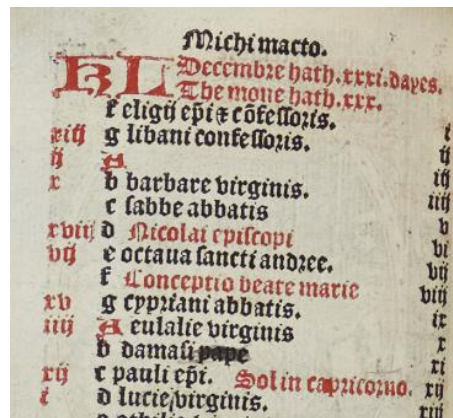 Michi macto.
KL Decembre hath.xxxi.dayes.
The mone hath.xxx.
f eligij ep̃i ⁊ cõfessoris. i
xiij g libani confessoris. ij
ij A iij
x b barbare virginis. iiij
c sabbe abbatis v
xviij d Nicolai episcopi vi
vij e octaua sancti andree. vij
f Conceptio beate marie viij
xv g cypriani abbatis. ix
iiij A eulalie virginis x
b damasi pape xi
xij c pauli ep̃i. Sol in capricorno. xij
i d lucie virginis. xiij